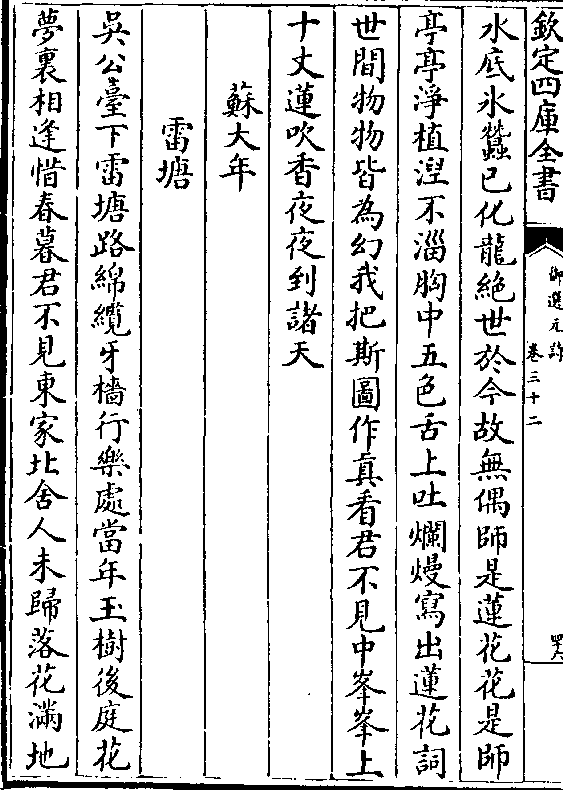 欽定四庫全書
御選元詩
卷三十二
四六
水底氷蠶已化龍絶世於今故無偶師是蓮花花是師
亭亭淨植湼不淄胸中五色舌上吐爛熳寫出蓮花詞
世間物物皆為幻我把斯圖作真看君不見中峯峯上
十丈蓮吹香夜夜到諸天
蘇大年
雷塘
吳公臺下雷塘路綿纜牙檣行樂處當年玉樹後庭花
夢裏相逢惜春暮君不見東家北舍人未歸落花滿地